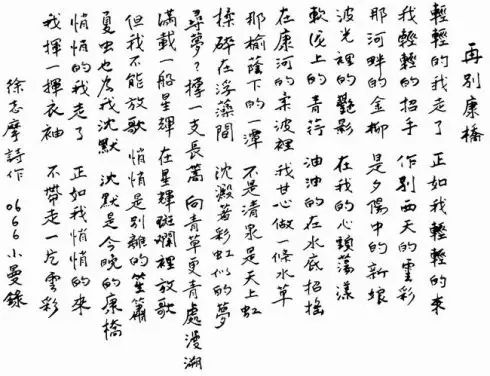 再別康橋
輕輕的我走了 正如我輕輕的來
我輕輕的招手 作別西天的雲彩
那河畔的金柳 是夕陽中的新娘
波光裡的艷影 在我的心頭蕩漾
軟泥上的青荇 油油的在水底招搖
在康河的柔波裡 我甘心做一條水草
那榆蔭下的一潭 不是清泉是天上虹
揉碎在浮藻間 沈澱著彩虹似的夢
尋夢?撐一支長篙 向青草更青處漫溯
滿載一船星輝 在星輝斑斕裡放歌
但我不能放歌 悄悄是別離的笙簫
夏虫也為我沈默 沈默是今晚的康橋
悄悄的我走了 正如我悄悄的來
我揮一揮衣袖 不帶走一片雲彩
徐志摩詩作 0666小曼錄